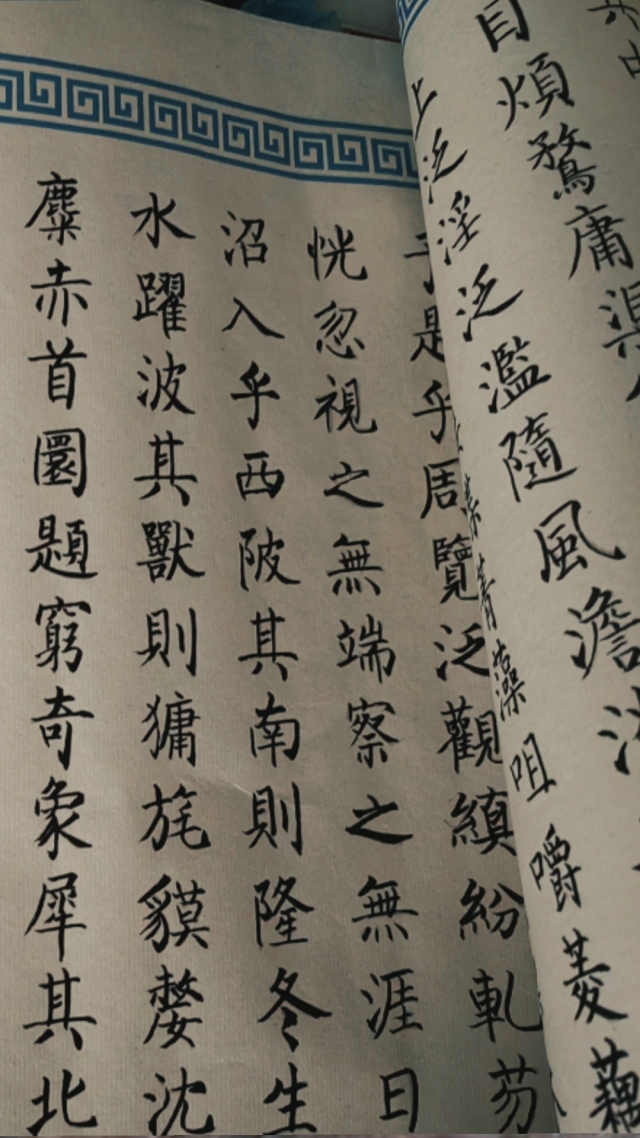 目煩鶩庸渠
上泛淫泛濫隨風澹
菁藻咀嚼菱藕
是乎周覽泛觀縝紛軋芴
恍忽視之無端察之無涯日
沼入乎西陂其南則隆冬生
水躍波其獸則㺎旄貘嫠沈
麋赤首圜題窮奇象犀其北